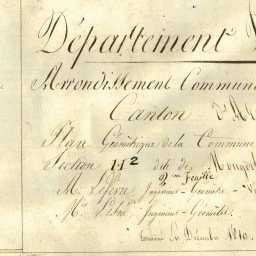 Département
Arrondissement Commun
Canton d'Ar
Plan Géométrique de la Commune
Section H2 dite de Monger
2me Feuille
M. Lefèvre Ingénieur - Géomètre - V
Mr Ingénieur - Géomètre.
Terminé le Décembre 1810.